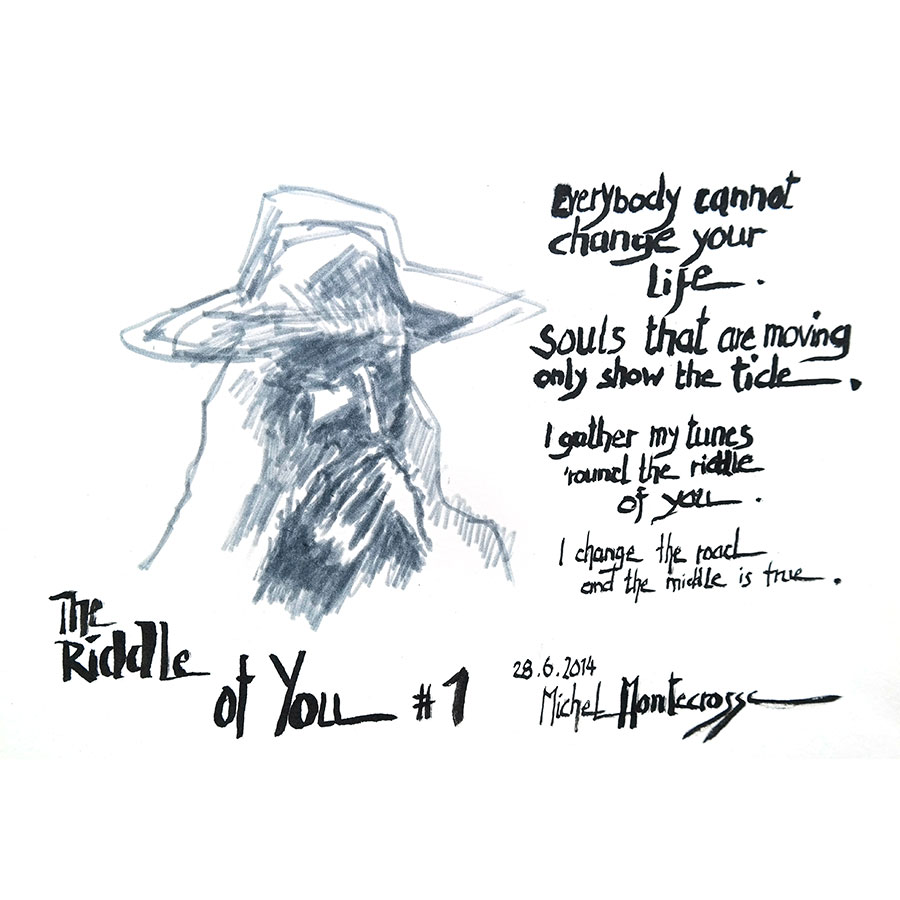 Everybody cannot
change your
life.
Souls that are moving
only show the tide.
I gather my tunes
'round the riddle
of you.
I change the road
and the middle is true.
The
Riddle
of You #1
28.6.2014
Michel Montecrossa